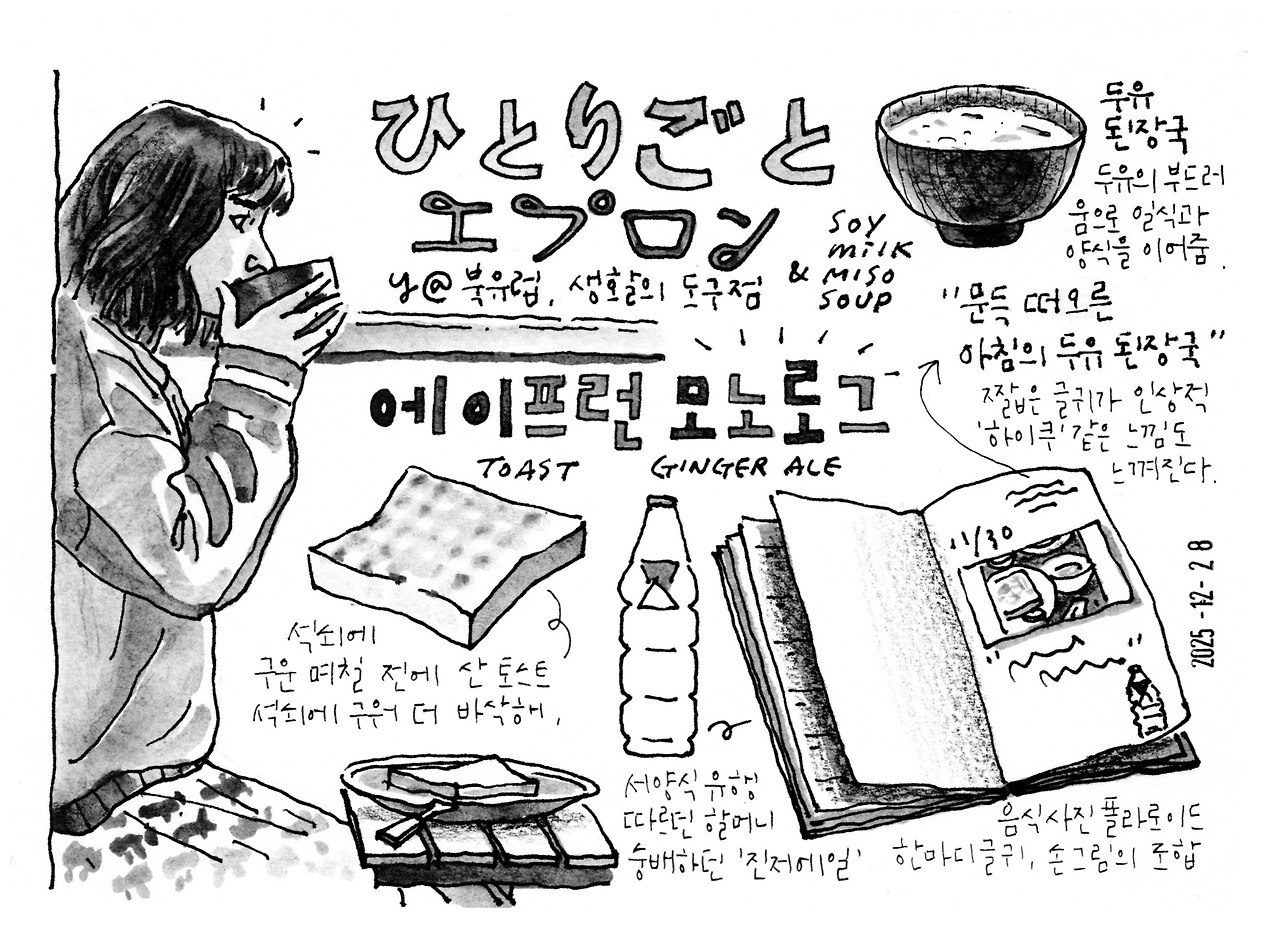 ひとりごと
エプロン
y@ 북유럽, 생활의 도구점
& SOY
MILK
MISO
SOUP
두유
된장국
두유의 부드러
움으로 일식과
양식을 이어줌.
"문득 떠오른
아침의 두유 된장국"
짧은 글귀가 인상적
'하이쿠' 같은 느낌도
느껴진다.
에이프런 모노로그
TOAST
GINGER ALE
석쇠에
구운 며칠 전에 산 토스트
석쇠에 구워 더 바삭해,
11/30
서양식 유행
따르던 할머니
숭배하던 '진저에일'
음식사진 폴라로이드
한마디글귀, 손그림의 조합
2025 -12- 28